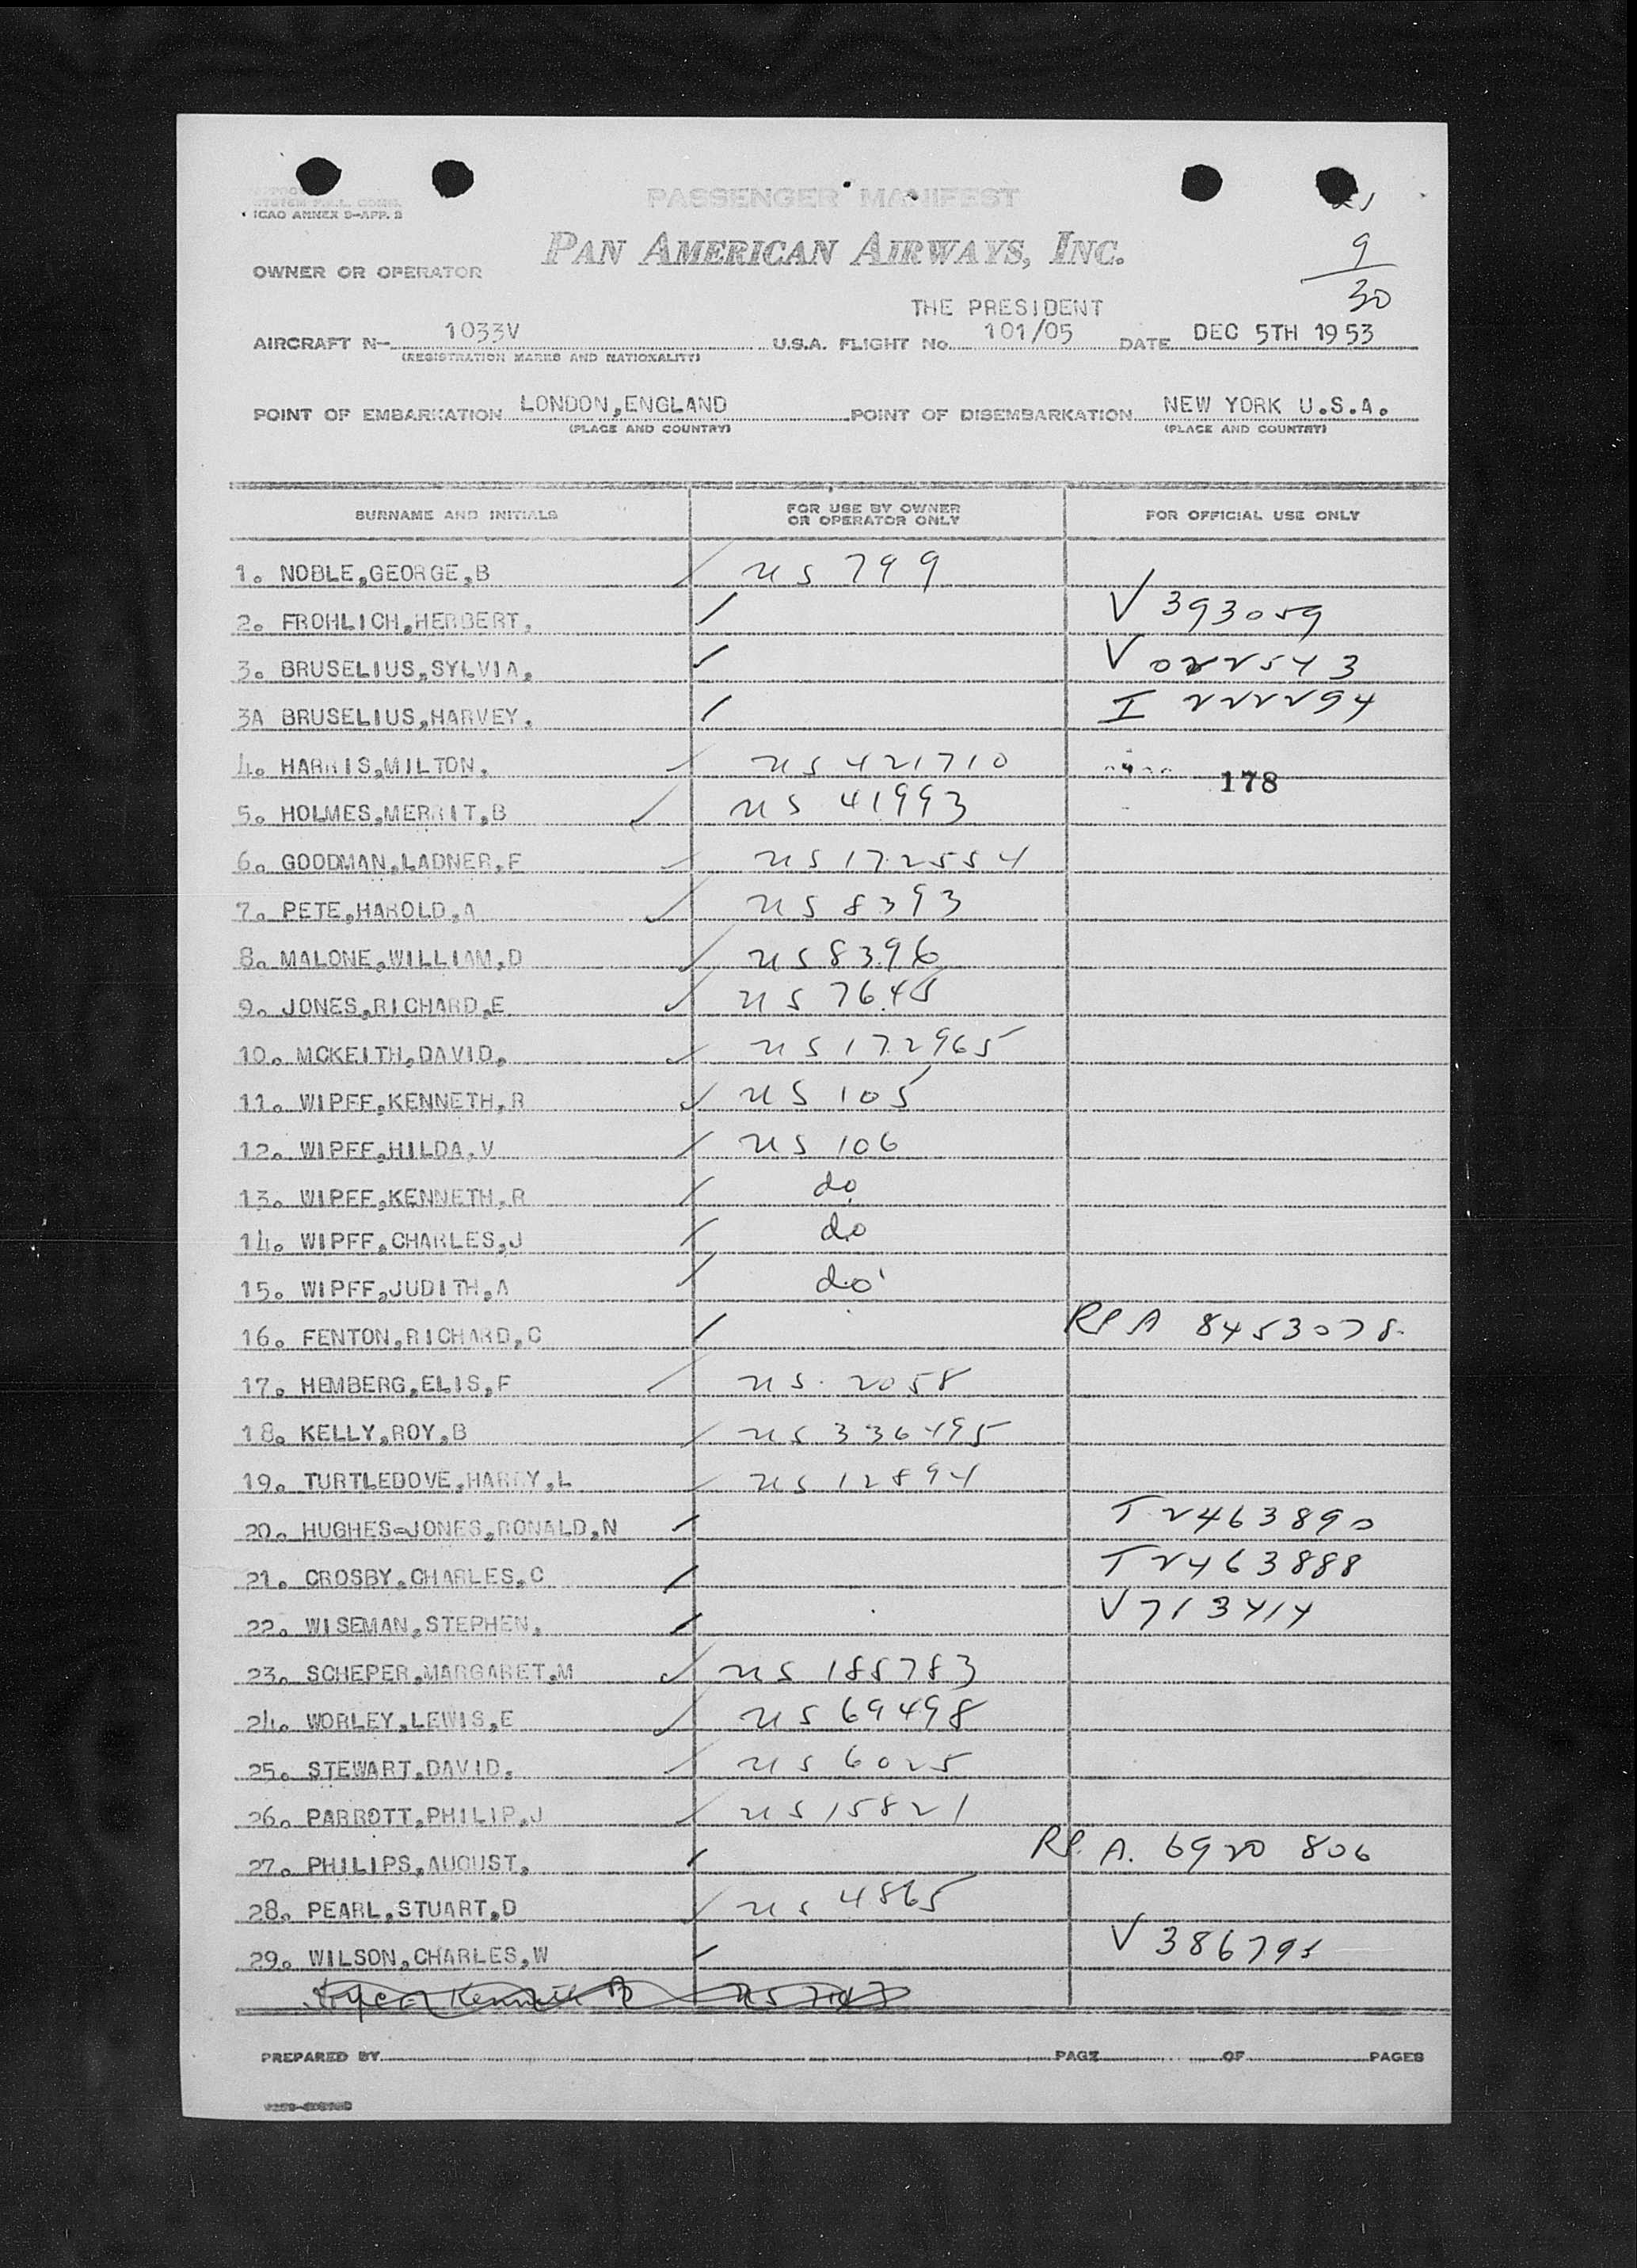 PASSENGER MANIFEST
ICAO ANNEX 9-APP. 2
PAN AMERICAN AIRWAYS, INC.
OWNER OR OPERATOR
9
30
THE PRESIDENT
AIRCRAFT N- 1033V U.S.A. FLIGHT No. 101/05 DATE DEC 5TH 1953
(REGISTRATION MARKS AND NATIONALITY)
POINT OF EMBARKATION LONDON,ENGLAND POINT OF DISEMBARKATION NEW YORK U.S.A.
(PLACE AND COUNTRY) (PLACE AND COUNTRY)
SURNAME AND INITIALS FOR USE BY OWNER OR OPERATOR ONLY FOR OFFICIAL USE ONLY
1. NOBLE,GEORGE,B US 799
2. FROHLICH,HERBERT. V 393059
3. BRUSELIUS,SYLVIA. V 022543
3A BRUSELIUS,HARVEY. I 222294
4. HARRIS,MILTON. US 421710 178
5. HOLMES,MERRIT,B US 41993
6. GOODMAN,LADNER,F US 172554
7. PETE,HAROLD,A US 8393
8. MALONE,WILLIAM,D US 8396
9. JONES,RICHARD,E US 7645
10. MCKEITH,DAVID. US 172965
11. WIPFF,KENNETH,R US 105
12. WIPFF,HILDA,V US 106
13. WIPFF,KENNETH,R do
14. WIPFF,CHARLES,J do
15. WIPFF,JUDITH,A do
16. FENTON,RICHARD,C RP A 8453078
17. HEMBERG,ELIS,F US 2058
18. KELLY,ROY,B US 336495
19. TURTLEDOVE,HARRY,L US 12894
20. HUGHES-JONES,RONALD,N T 2463890
21. CROSBY,CHARLES,C T 2463888
22. WISEMAN,STEPHEN. V 713414
23. SCHEPER,MARGARET,M US 185783
24. WORLEY,LEWIS,E US 69498
25. STEWART,DAVID. US 6025
26. PARROTT,PHILIP,J US 15821
27. PHILIPS,AUGUST. RP. A. 6920 806
28. PEARL,STUART,D US 4865
29. WILSON,CHARLES,W V 386795
PREPARED BY PAGE OF PAGES